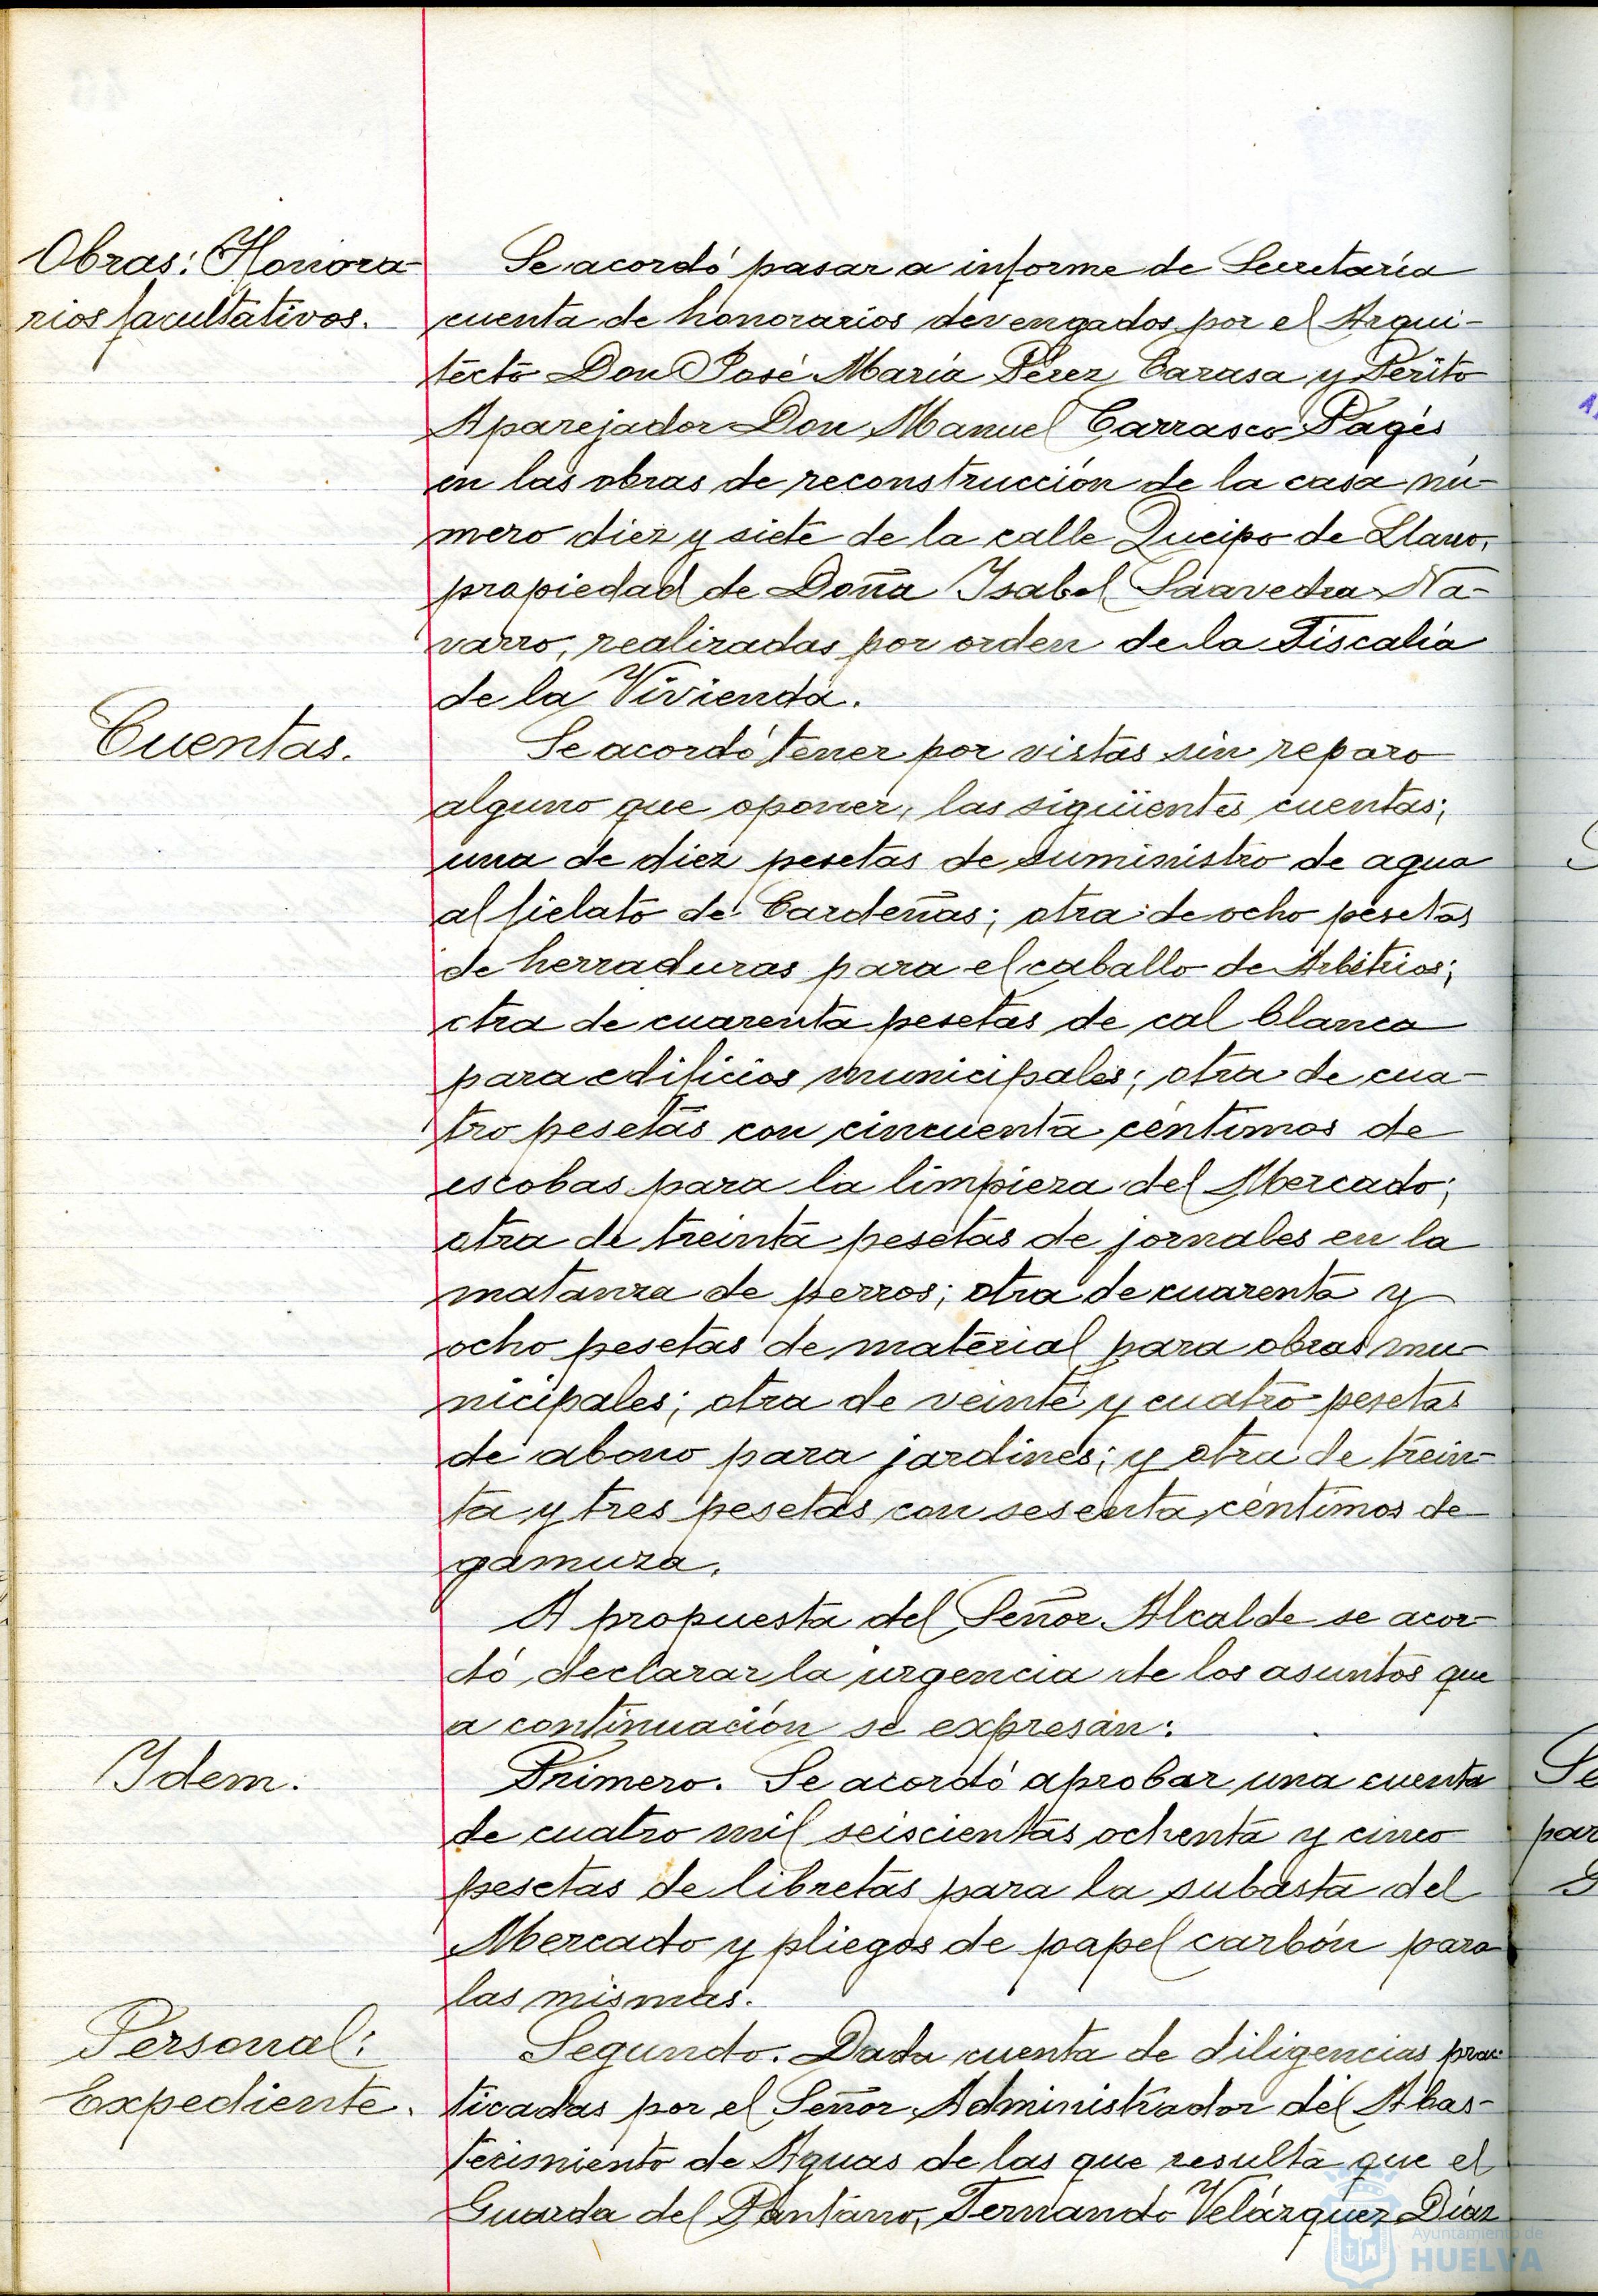 Obras: Honora
rios facultativos.
Se acordó pasar a informe de Secretaría
cuenta de honorarios devengados por el Arqui-
tecto Don José María Pérez Carasa y Perito
Aparejador Don Manuel Carrasco Pagés
en las obras de reconstrucción de la casa nú-
mero diez y siete de la calle Queipo de Llano,
propiedad de Doña Isabel Saavedra Na-
varro, realizadas por orden de la Fiscalía
de la Vivienda.
Cuentas.
Se acordó tener por vistas sin reparo
alguno que oponer, las siguientes cuentas;
una de diez pesetas de suministro de agua
al fielato de Cardeñas; otra de ocho pesetas
de herraduras para el caballo de Arbitrios;
otra de cuarenta pesetas de cal blanca
para edificios municipales; otra de cua-
tro pesetas con cincuenta céntimos de
escobas para la limpieza del Mercado;
otra de treinta pesetas de jornales en la
matanza de perros; otra de cuarenta y
ocho pesetas de material para obras mu-
nicipales; otra de veinte y cuatro pesetas
de abono para jardines; y otra de trein-
ta y tres pesetas con sesenta céntimos de
gamuza.
A propuesta del Señor Alcalde se acor-
dó declarar la urgencia de los asuntos que
a continuación se expresan:
Idem.
Primero. Se acordó aprobar una cuenta
de cuatro mil seiscientas ochenta y cinco
pesetas de libretas para la subasta del
Mercado y pliegos de papel carbón para
las mismas.
Personal:
Expediente.
Segundo. Dada cuenta de diligencias prac
ticadas por el Señor Administrador del Abas-
tecimiento de Aguas de las que resulta que el
Guarda del Pantano, Fernando Velázquez Díaz
Ayuntamiento de
HUELVA